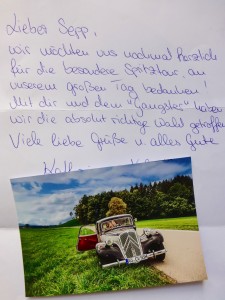 Lieber Sepp,
wir möchten uns nochmal herzlich
für die besondere Spritztour, an
unserem großen Tag bedanken!
Mit dir und dem "Gangster" haben
wir die absolut richtige Wahl getroffen
Viele liebe Grüße u. alles Gute